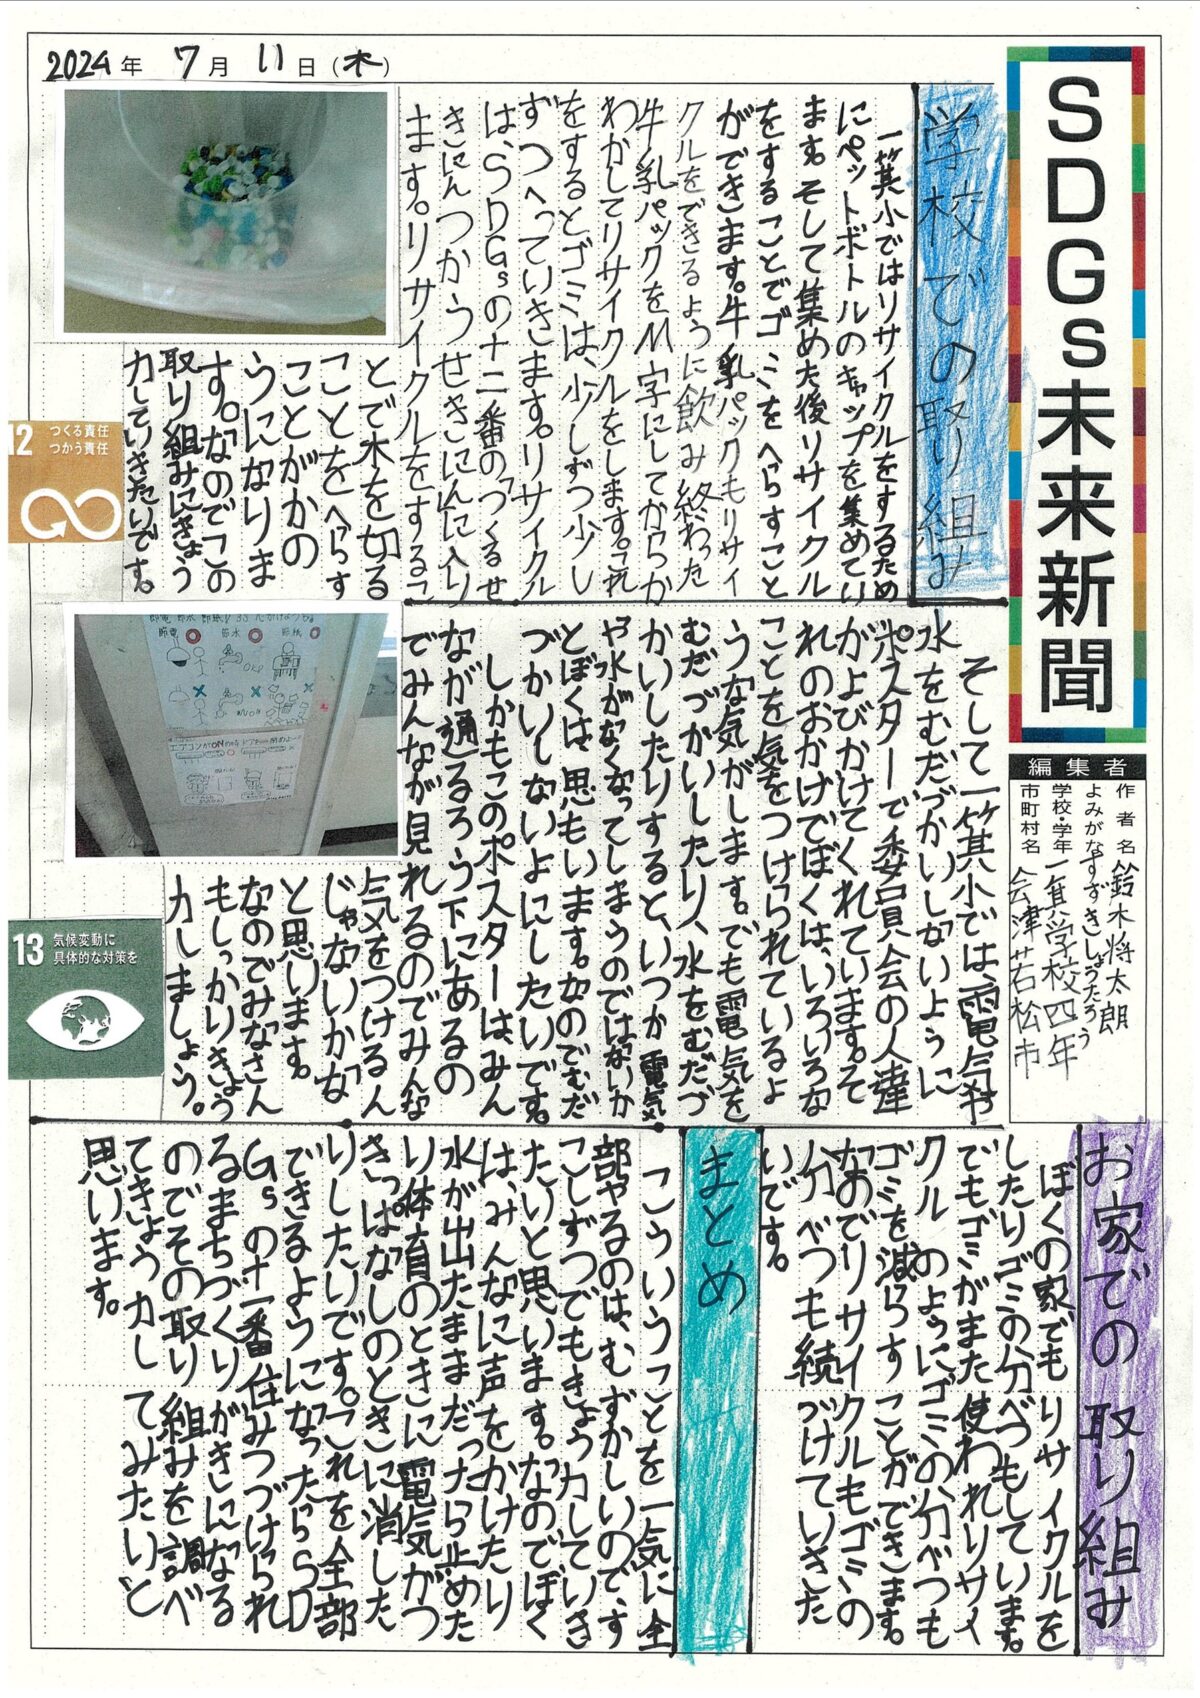 2024年 7月 11日(木)
SDGs未来新聞
編集者
作者名 鈴木将太郎
よみがな すずきしょうたろう
学校・学年 一箕小学校四年
市町村名 会津若松市
学校での取り組み
一箕小ではリサイクルをするため
にペットボトルのキャップを集めてい
ます。そして集めた後リサイクル
をすることでゴミをへらすこと
ができます。牛乳パックもリサイ
クルをできるように飲み終わった
牛乳パックをM字にしてからか
わかしてリサイクルをします。これ
をするとゴミは、少しずつ少し
ずつへっていきます。リサイクル
は、SDGsの十二番の「つくるせ
きにんつかうせきにん」に入り
ます。リサイクルをするこ
とで木を切る
ことをへらす
ことがかの
うになりま
す。なのでこの
取り組みにきょう
力していきたいです。
12 つくる責任
つかう責任
そして一箕小では、電気や
水をむだづかいしないように
ポスターで委員会の人達
がよびかけてくれています。そ
れのおかけでぼくは、いろいろな
ことを気をつけられているよ
うな気がします。でも電気を
むだづかいしたり、水をむだづ
かいしたりすると、いつか電気
や水がなくなってしまうのではないか
とぼくは、思もいます。なのでむだ
づかいしないよにしたいです。
しかもこのポスターは、みん
なが通るろう下にあるの
でみんなが見れるのでみんな
気をつけるん
じゃないかな
と思います。
なのでみなさん
もしっかりきょう
力しましょう。
節電 節水 節紙
エアコンがONの時
13 気候変動に
具体的な対策を
お家での取り組み
ぼくの家でもリサイクルを
したりゴミの分べつもしています。
でもゴミがまた使われリサイ
クルのようにゴミの分べつも
ゴミを減らすことができます。
なおでリサイクルもゴミの
分べつも続づけていきた
いです。
まとめ
こういうことを一気に全
部やるのは、むずかしいので、す
こしずつでもきょう力していき
たいと思います。なのでぼく
は、みんなに声をかけたり
水が出たままだったら止めた
り体育のときに電気がつ
きっぱなしのときに消した
りしたいです。これを全部
できるようになったらSD
Gsの十一番住みつづけられ
るまちづくりがきになる
のでその取り組みを調べ
てきょう力してみたいと
思います。